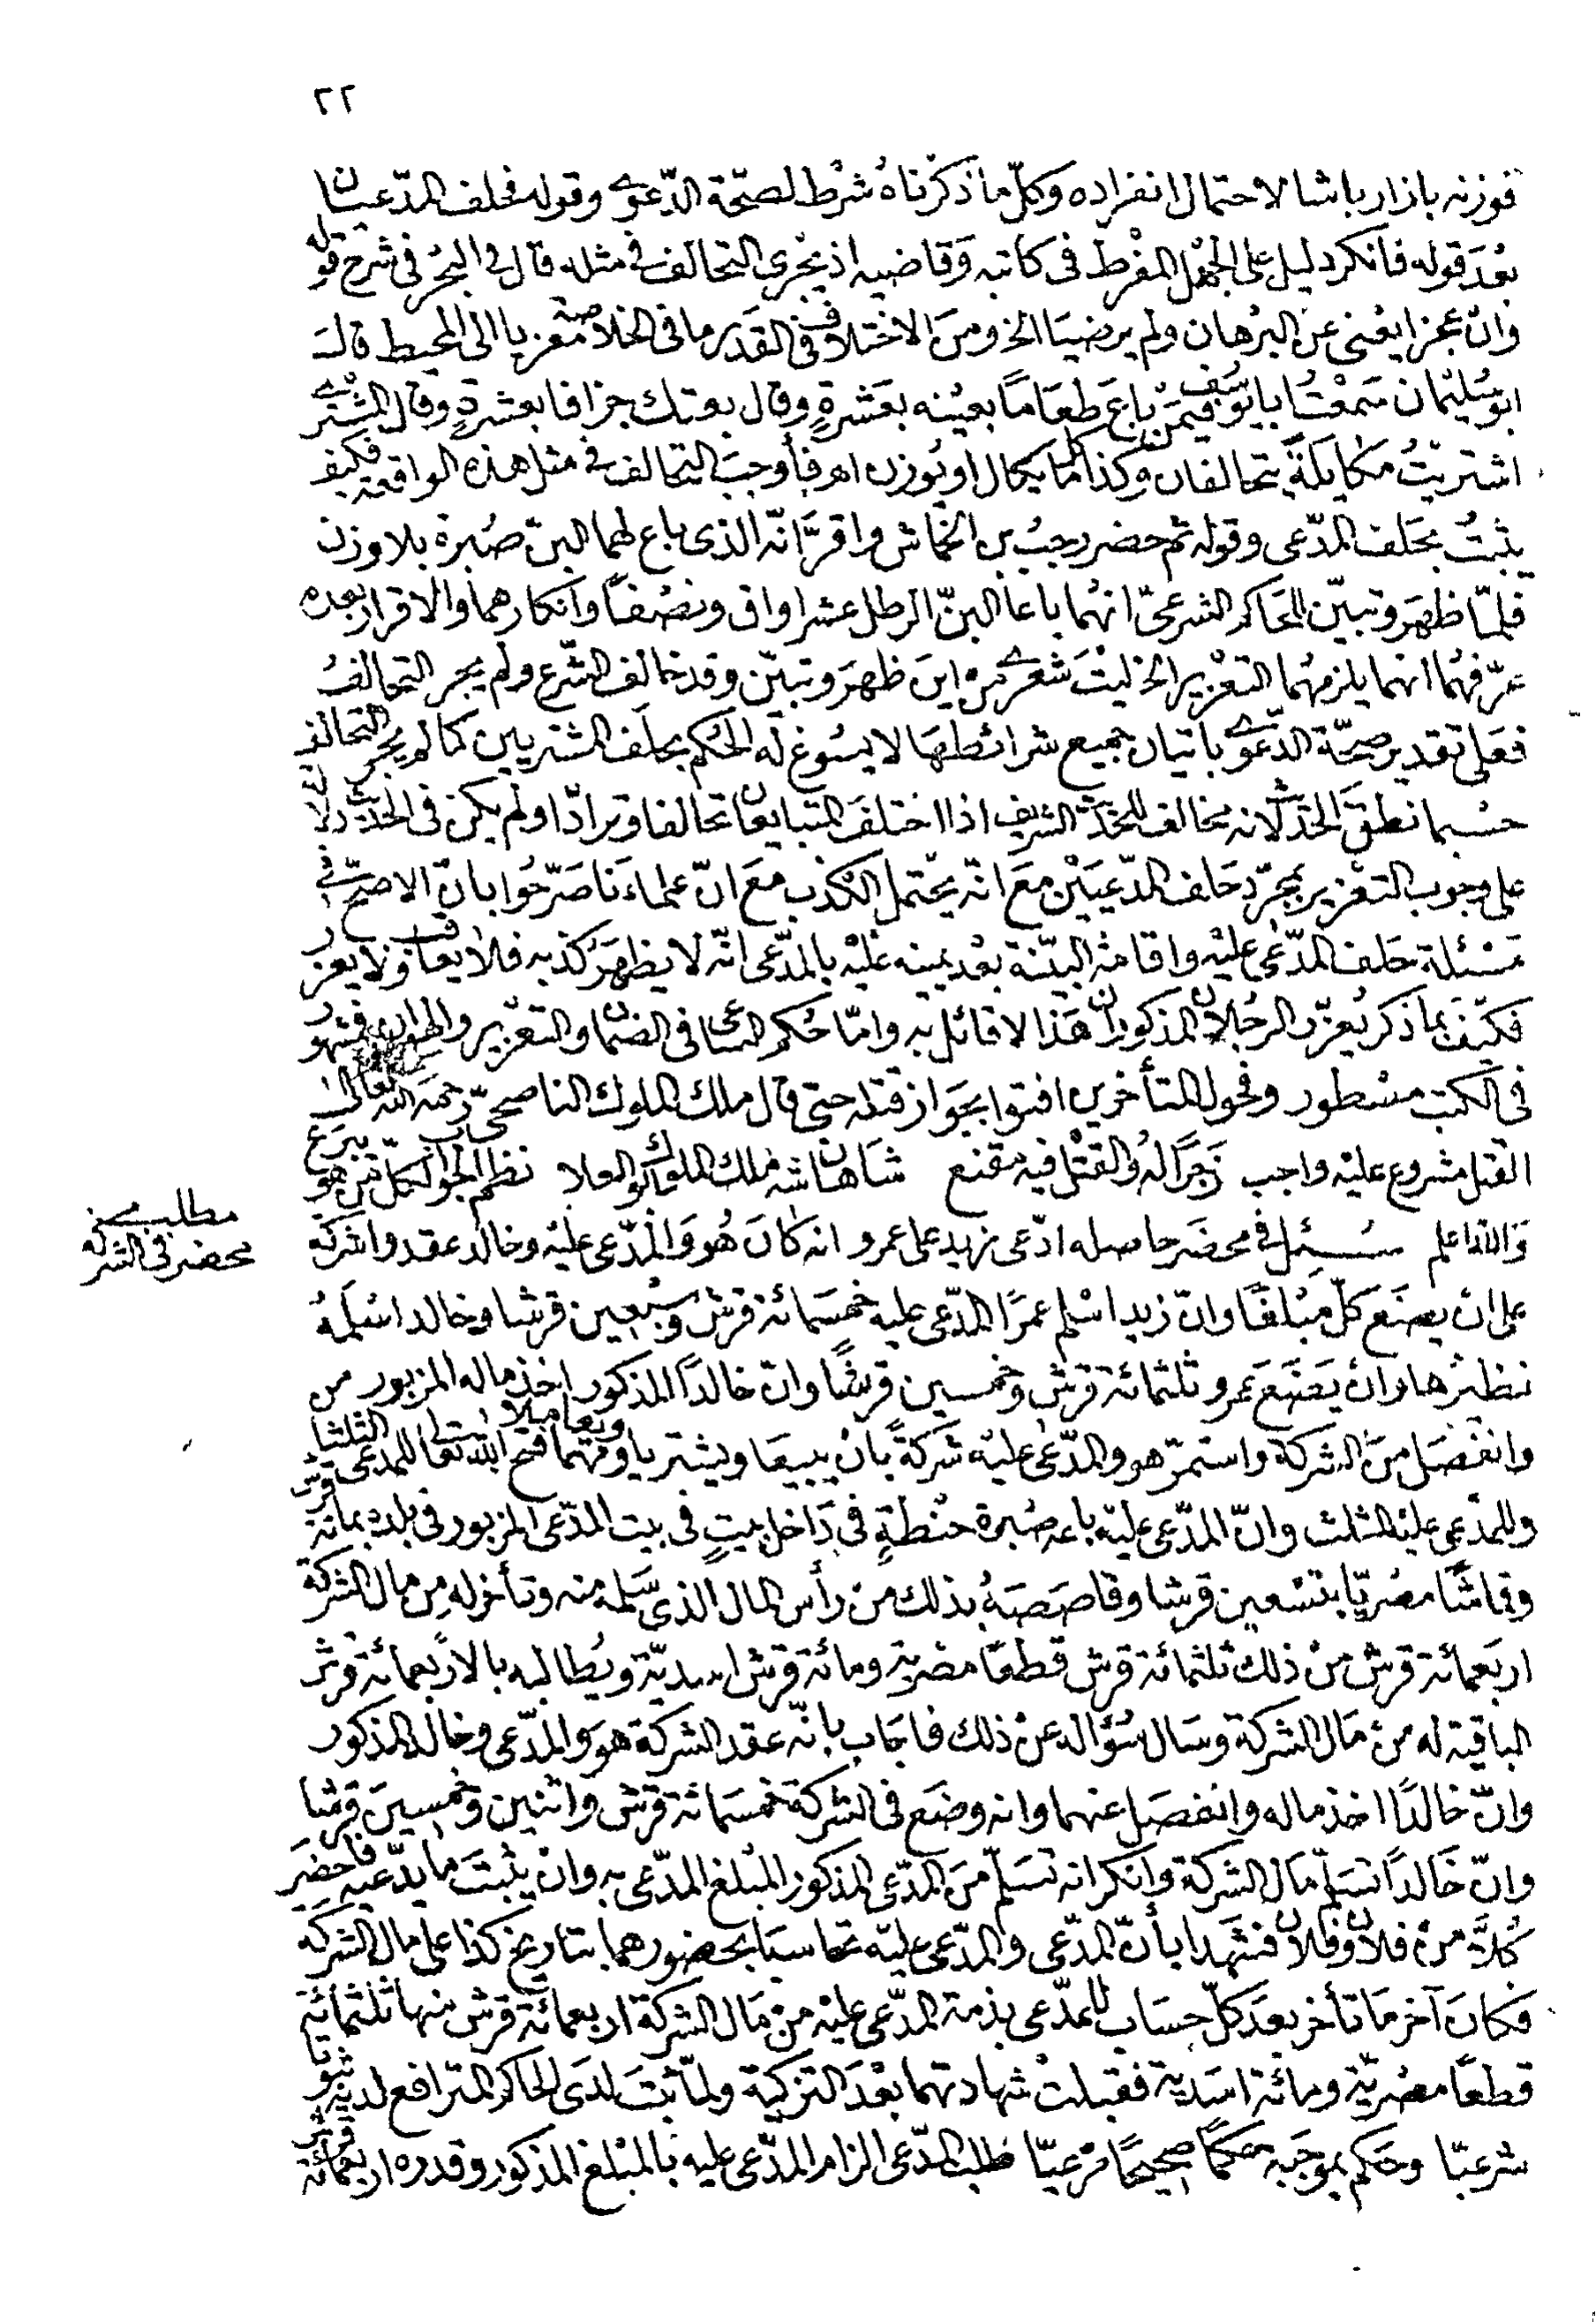 ٢٢
فوزنه بازار باشا لاحتمال انفراده وكلّ ما ذكرناه شرط لصحّة الدّعوى وقوله فحلف المدّعيان
بعد قوله فانكر دليل على الجهل المفرط فى كاتبه وقاضيه اذ يجرى التحالف فى مثله قال فى البحر فى شرح قوله
وان عجزا يعنى عن البرهان ولم يرضيا الخ ومن الاختلاف فى القدر ما فى الخلاصة معزيا الى المحيط قال
ابو سليمان سمعت ابا يوسف فيمن باع طعاما بعينه بعشرةٍ وقال بعتك جزافا بعشرةٍ وقال المشترى
اشتريتُ مكايلةً يتحالفان وكذا كلما يكال او يوزن اهـ فأوجب التحالف فى مثل هذه الواقعة فكيف
يثبتُ بحلف المدّعى وقوله ثم حضر رجب بن الخماش واقرّ انّه الذى باع لهما البنّ صُبرة بلا وزن
فلمّا ظهر وتبيّن للحاكم الشرعىّ انهما باعا البنّ الرطل عشر اواق ونصفاً وانكارهما والاقرار بعده
عرّفهما انهما يلزمهما التعزير الخ ليت شعرى من اين ظهر وتبيّن وقد خالف الشّرع ولم يجر التحالفُ
فعلى تقدير صحّة الدّعوى باتيان جميع شرائطها لا يسوغ له الحكم بحلف المشتريين كما لم يجر التحالف
حسبما نطق الحديث لانه مخالف للحديث الشريف اذا اختلف المتبايعان تحالفا وترادّا ولم يكن فى الحديث دلالة
على وجوب التعزير بمجرّد حلف المدّعيين مع انّه يحتمل الكذب مع انّ علماءنا صرّحوا بانّ الاصحّ فى
مسئلة حلف المدّعى عليه واقامة البيّنة بعد يمينه عليه بالمدّعى انّه لا يظهر كذبه فلا يعاقب ولا يعزر
فكيف بما ذكر يُعزّر الرجلان المذكوران هذا لا قائل به وامّا حكم الساعى فى الضمان والتعزير والهوان فمشهور
فى الكتب مسطور وفحول المتأخرين افتوا بجواز قتله حتى قال ملك الملوك الناصحىّ رحمه الله تعالى
القتل مشروع عليه واجب زجرًا له والقتل فيه مقنع شاهان شه ملك الملوك ابو العلا نظم الجواب لكلّ من هو يبرع
والله اعلم سئل فى محضر حاصله ادّعى زيد على عمرو انه كان هو والمدّعى عليه وخالد عقدوا شركة
مطلب فى محضر فى الشركة
على ان يضع كلّ مبلغًا وانّ زيدا سلم عمرًا المدّعى عليه خمسمائة قرش وسبعين قرشا وخالد اسلمه
نظيرها وان يضع عمرو ثلثمائة قرش وخمسين قرشًا وانّ خالدًا المذكور اخذ ماله المزبور من
وانفصل من الشركة واستمرّ هو والمدّعى عليه شركةً بان يبيعا ويشتريا ويعاملا ومهما فتح الله تعالى للمدعى الثلثا
وللمدّعى عليه الثلث وانّ المدّعى عليه باعه صبرة حنطةٍ فى داخل بيتٍ فى بيت المدّعى المزبور فى بلده بمائة قرش
وقماشًا مصريّا بتسعين قرشا وقاصصهُ بذلك من رأس المال الذى سلمه منه وتأخر له من مال الشركة
اربعمائة قرش من ذلك ثلثمائة قرش قطعًا مصرية ومائة قرش اسديّة ويُطالبه بالاربعمائة قرش
الباقية له من مال الشركة وسال سؤاله عن ذلك فاجاب بانّه عقد الشركة هو والمدّعى وخالد المذكور
وانّ خالدًا اخذ ماله وانفصل عنهما وانه وضع فى الشركة خمسمائة قرش واثنين وخمسين قرشا
وانّ خالدًا تسلّم مال الشركة وانكر انه تسلّم من المدّعى المذكور المبلغ المدّعى به وان يثبت ما يدّعيه فاحضر
كُلاًّ من فلان وفلان فشهدا بأنّ المدّعى والمدّعى عليه تحاسبا بحضورهما بتاريخ كذا على مال الشركة
فكان آخر ما تأخر بعد كلّ حساب للمدّعى بذمة المدّعى عليه من مال الشركة اربعمائة قرش منها ثلثمائة
قطعًا مصريّة ومائة اسدية فقبلت شهادتهما بعد التزكية ولمّا ثبت لدى الحاكم المترافع لديه ثبوتا
شرعيّا وحكم بموجبه حكمًا صحيحًا مرعيّا طلب المدّعى الزام المدّعى عليه بالمبلغ المذكور وقدره اربعمائة قرش